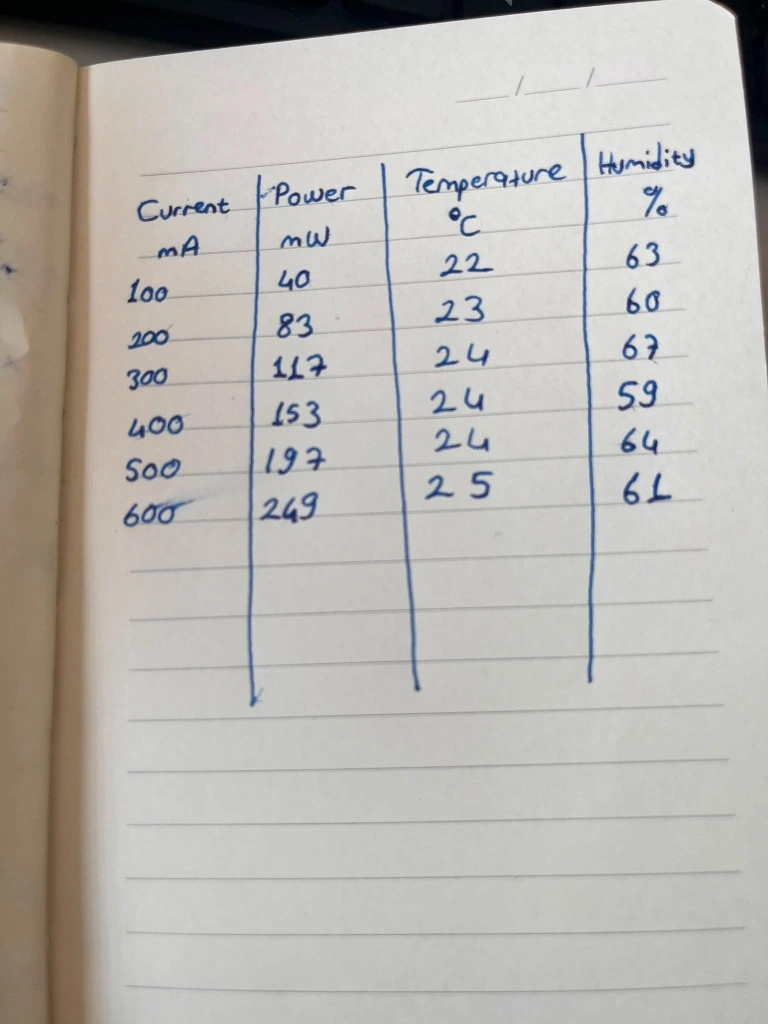 __/__/__
Current Power Temperature Humidity
mA mW °C %
100 40 22 63
200 83 23 60
300 117 24 67
400 153 24 59
500 197 24 64
600 249 25 61